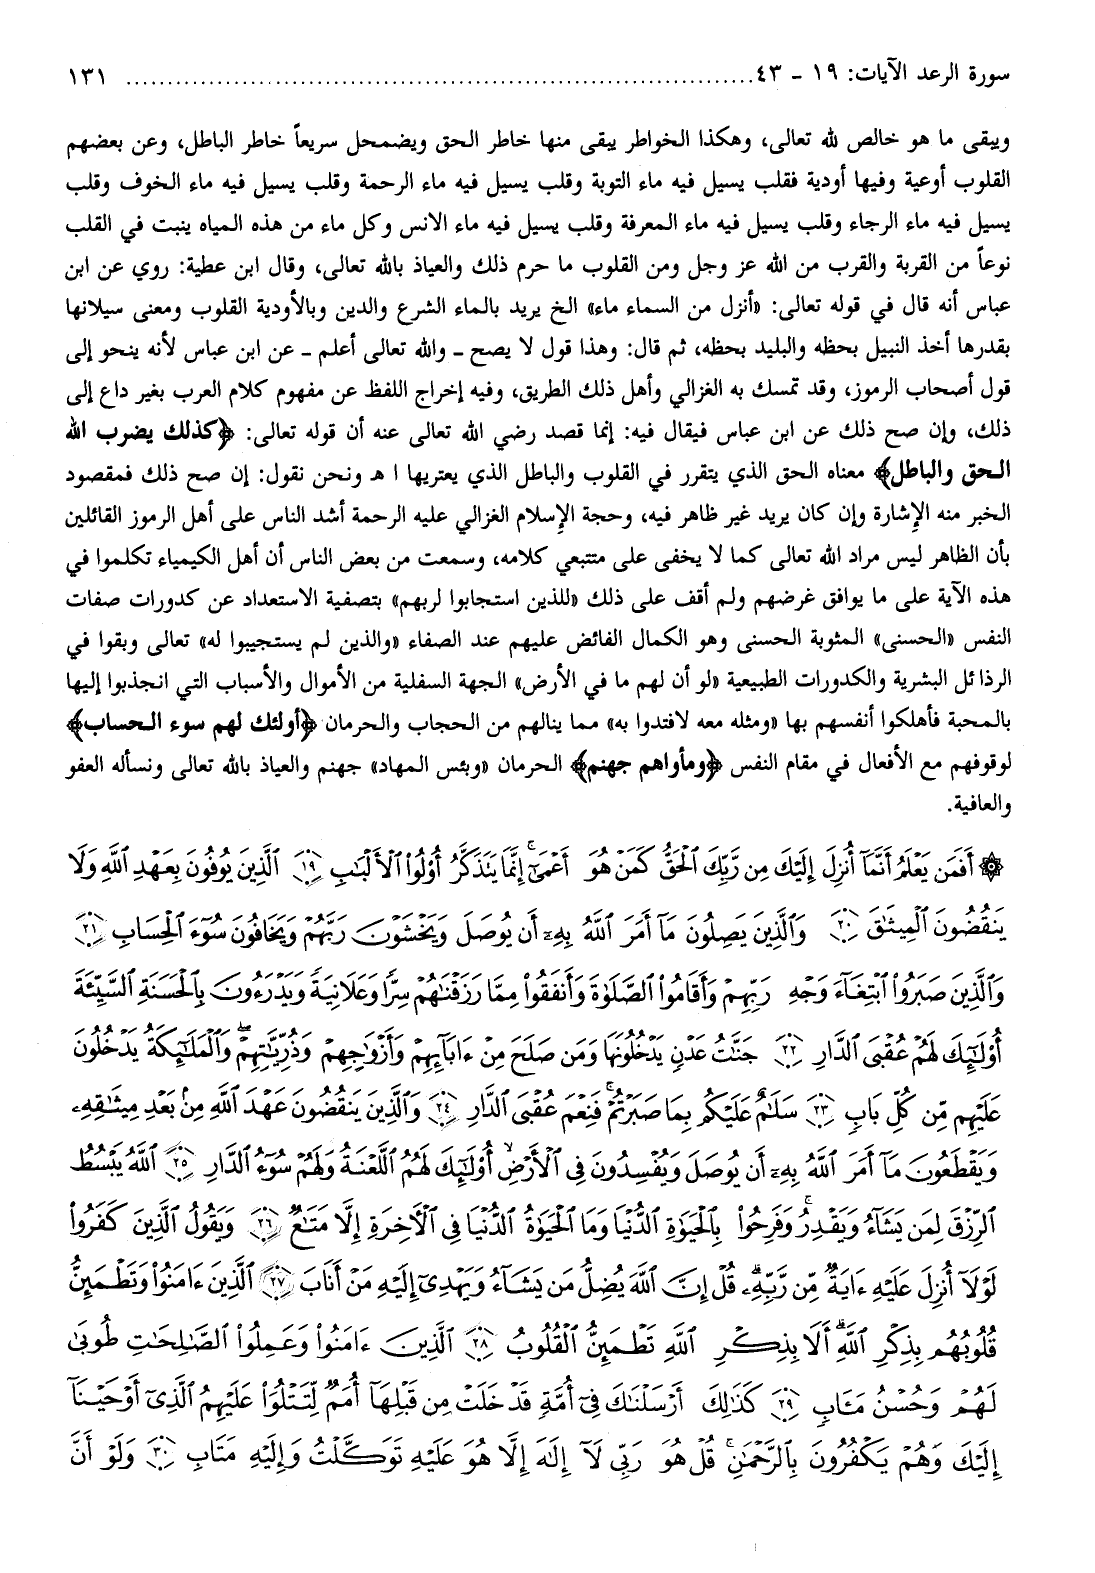 سورة الرعد الآيات: ١٩ - ٤٣ ........................................................................... ١٣١
ويبقى ما هو خالص لله تعالى، وهكذا الخواطر يبقى منها خاطر الحق ويضمحل سريعاً خاطر الباطل، وعن بعضهم
القلوب أوعية وفيها أودية فقلب يسيل فيه ماء التوبة وقلب يسيل فيه ماء الرحمة وقلب يسيل فيه ماء الخوف وقلب
يسيل فيه ماء الرجاء وقلب يسيل فيه ماء المعرفة وقلب يسيل فيه ماء الانس وكل ماء من هذه المياه ينبت في القلب
نوعاً من القربة والقرب من الله عز وجل ومن القلوب ما حرم ذلك والعياذ بالله تعالى، وقال ابن عطية: روي عن ابن
عباس أنه قال في قوله تعالى: «أنزل من السماء ماء» الخ يريد بالماء الشرع والدين وبالأودية القلوب ومعنى سيلانها
بقدرها أخذ النبيل بحظه والبليد بحظه، ثم قال: وهذا قول لا يصح ـ والله تعالى أعلم ـ عن ابن عباس لأنه ينحو إلى
قول أصحاب الرموز، وقد تمسك به الغزالي وأهل ذلك الطريق، وفيه إخراج اللفظ عن مفهوم كلام العرب بغير داع إلى
ذلك، وإن صح ذلك عن ابن عباس فيقال فيه: إنما قصد رضي الله تعالى عنه أن قوله تعالى: ﴿كذلك يضرب الله
الحق والباطل﴾ معناه الحق الذي يتقرر في القلوب والباطل الذي يعتريها ا هـ ونحن نقول: إن صح ذلك فمقصود
الخبر منه الإشارة وإن كان يريد غير ظاهر فيه، وحجة الإسلام الغزالي عليه الرحمة أشد الناس على أهل الرموز القائلين
بأن الظاهر ليس مراد الله تعالى كما لا يخفى على متتبعي كلامه، وسمعت من بعض الناس أن أهل الكيمياء تكلموا في
هذه الآية على ما يوافق غرضهم ولم أقف على ذلك «للذين استجابوا لربهم» بتصفية الاستعداد عن كدورات صفات
النفس «الحسنى» المثوبة الحسنى وهو الكمال الفائض عليهم عند الصفاء «والذين لم يستجيبوا له» تعالى وبقوا في
الرذائل البشرية والكدورات الطبيعية «لو أن لهم ما في الأرض» الجهة السفلية من الأموال والأسباب التي انجذبوا إليها
بالمحبة فأهلكوا أنفسهم بها «ومثله معه لافتدوا به» مما ينالهم من الحجاب والحرمان ﴿أولئك لهم سوء الحساب﴾
لوقوفهم مع الأفعال في مقام النفس ﴿ومأواهم جهنم﴾ الحرمان «وبئس المهاد» جهنم والعياذ بالله تعالى ونسأله العفو
والعافية.
۞ أَفَمَن يَعْلَمُ أَنَّمَآ أُنزِلَ إِلَيْكَ مِن رَّبِّكَ ٱلْحَقُّ كَمَنْ هُوَ أَعْمَىٰٓ ۚ إِنَّمَا يَتَذَكَّرُ أُو۟لُوا۟ ٱلْأَلْبَٰبِ ١٩ ٱلَّذِينَ يُوفُونَ بِعَهْدِ ٱللَّهِ وَلَا
يَنقُضُونَ ٱلْمِيثَٰقَ ٢٠ وَٱلَّذِينَ يَصِلُونَ مَآ أَمَرَ ٱللَّهُ بِهِۦٓ أَن يُوصَلَ وَيَخْشَوْنَ رَبَّهُمْ وَيَخَافُونَ سُوٓءَ ٱلْحِسَابِ ٢١
وَٱلَّذِينَ صَبَرُوا۟ ٱبْتِغَآءَ وَجْهِ رَبِّهِمْ وَأَقَامُوا۟ ٱلصَّلَوٰةَ وَأَنفَقُوا۟ مِمَّا رَزَقْنَٰهُمْ سِرًّا وَعَلَانِيَةً وَيَدْرَءُونَ بِٱلْحَسَنَةِ ٱلسَّيِّئَةَ
أُو۟لَٰٓئِكَ لَهُمْ عُقْبَى ٱلدَّارِ ٢٢ جَنَّٰتُ عَدْنٍ يَدْخُلُونَهَا وَمَن صَلَحَ مِنْ ءَابَآئِهِمْ وَأَزْوَٰجِهِمْ وَذُرِّيَّٰتِهِمْ ۖ وَٱلْمَلَٰٓئِكَةُ يَدْخُلُونَ
عَلَيْهِم مِّن كُلِّ بَابٍ ٢٣ سَلَٰمٌ عَلَيْكُم بِمَا صَبَرْتُمْ ۚ فَنِعْمَ عُقْبَى ٱلدَّارِ ٢٤ وَٱلَّذِينَ يَنقُضُونَ عَهْدَ ٱللَّهِ مِنۢ بَعْدِ مِيثَٰقِهِۦ
وَيَقْطَعُونَ مَآ أَمَرَ ٱللَّهُ بِهِۦٓ أَن يُوصَلَ وَيُفْسِدُونَ فِى ٱلْأَرْضِ ۙ أُو۟لَٰٓئِكَ لَهُمُ ٱللَّعْنَةُ وَلَهُمْ سُوٓءُ ٱلدَّارِ ٢٥ ٱللَّهُ يَبْسُطُ
ٱلرِّزْقَ لِمَن يَشَآءُ وَيَقْدِرُ ۚ وَفَرِحُوا۟ بِٱلْحَيَوٰةِ ٱلدُّنْيَا وَمَا ٱلْحَيَوٰةُ ٱلدُّنْيَا فِى ٱلْأَخِرَةِ إِلَّا مَتَٰعٌ ٢٦ وَيَقُولُ ٱلَّذِينَ كَفَرُوا۟
لَوْلَآ أُنزِلَ عَلَيْهِ ءَايَةٌ مِّن رَّبِّهِۦ ۗ قُلْ إِنَّ ٱللَّهَ يُضِلُّ مَن يَشَآءُ وَيَهْدِىٓ إِلَيْهِ مَنْ أَنَابَ ٢٧ ٱلَّذِينَ ءَامَنُوا۟ وَتَطْمَئِنُّ
قُلُوبُهُم بِذِكْرِ ٱللَّهِ ۗ أَلَا بِذِكْرِ ٱللَّهِ تَطْمَئِنُّ ٱلْقُلُوبُ ٢٨ ٱلَّذِينَ ءَامَنُوا۟ وَعَمِلُوا۟ ٱلصَّٰلِحَٰتِ طُوبَىٰ
لَهُمْ وَحُسْنُ مَـَٔابٍ ٢٩ كَذَٰلِكَ أَرْسَلْنَٰكَ فِىٓ أُمَّةٍ قَدْ خَلَتْ مِن قَبْلِهَآ أُمَمٌ لِّتَتْلُوَا۟ عَلَيْهِمُ ٱلَّذِىٓ أَوْحَيْنَآ
إِلَيْكَ وَهُمْ يَكْفُرُونَ بِٱلرَّحْمَٰنِ ۚ قُلْ هُوَ رَبِّى لَآ إِلَٰهَ إِلَّا هُوَ عَلَيْهِ تَوَكَّلْتُ وَإِلَيْهِ مَتَابِ ٣٠ وَلَوْ أَنَّ